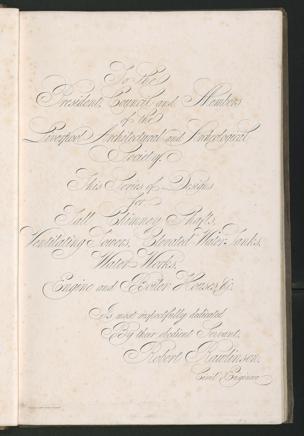 To the
President, Council, and Members
of the
Liverpool Architectural and Archæological
Society.
This Series of Designs
for
Tall Chimney Shafts,
Ventilating Towers, Elevated Water Tanks,
Water Works,
Engine and Boiler Houses, &c.
Is most respectfully dedicated
By their obedient Servant,
Robert Rawlinson,
Civil Engineer